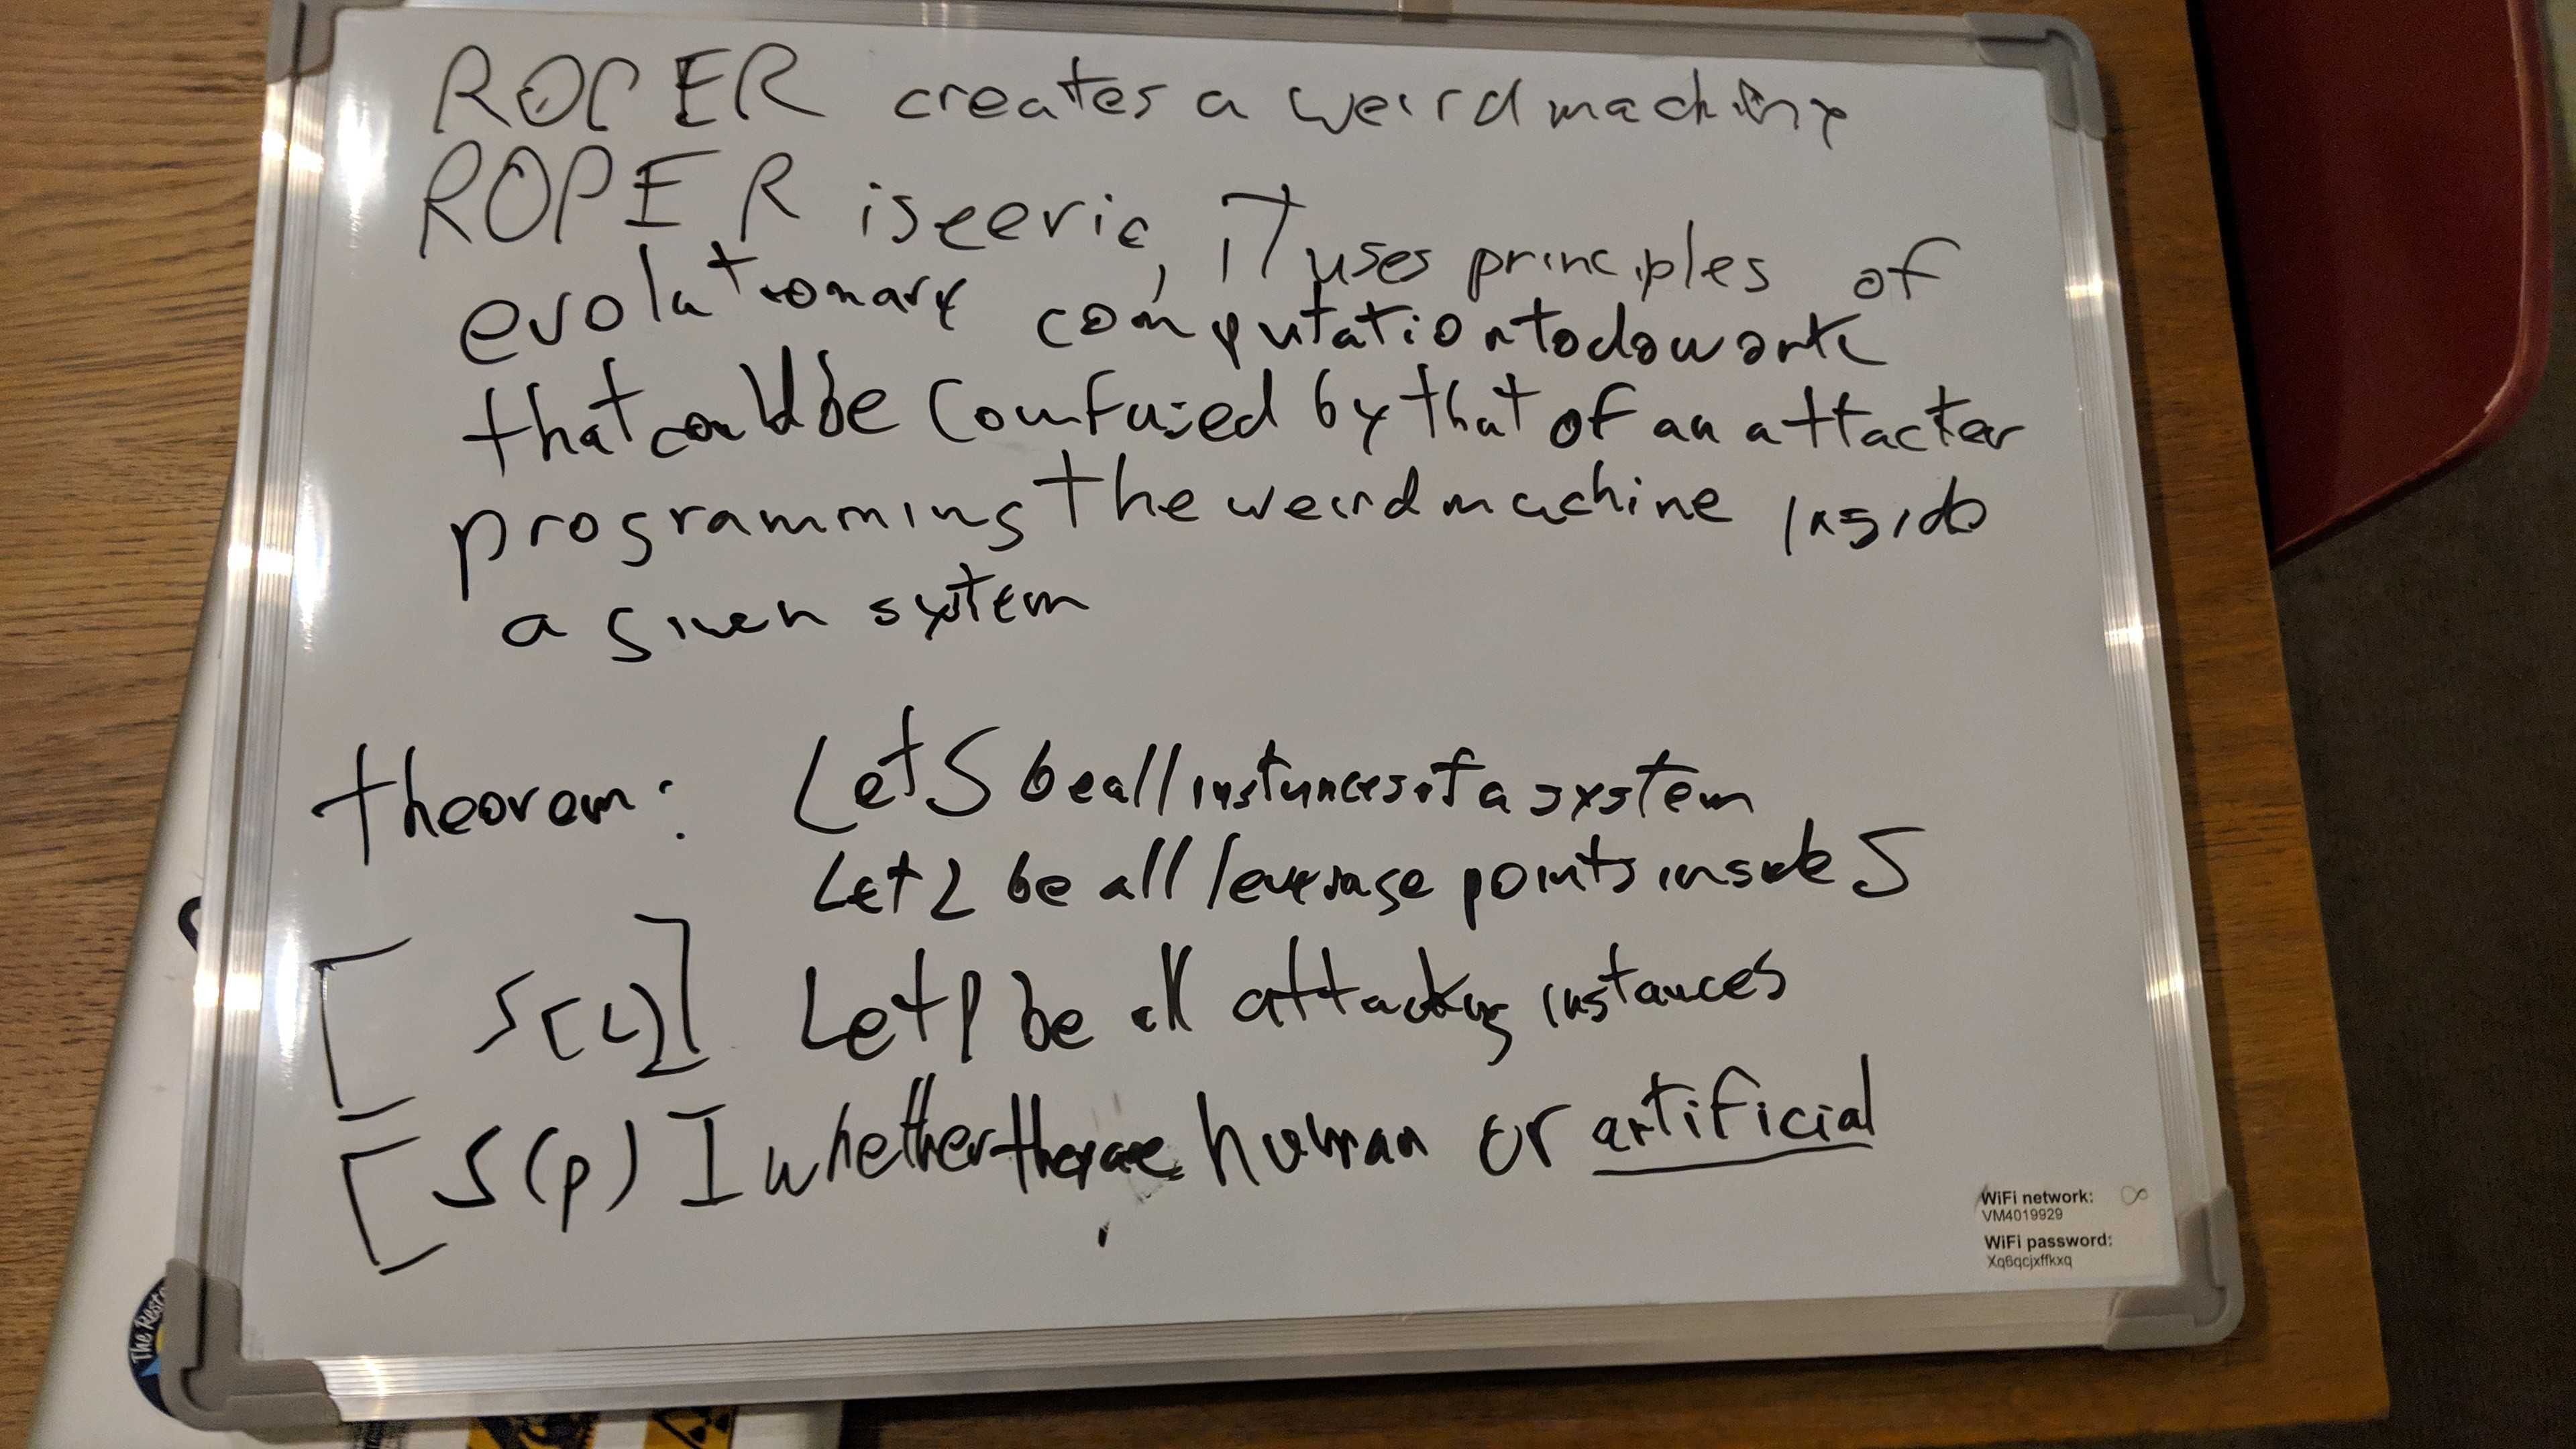 ROPER creates a weird machine
ROPER is eerie, it uses principles of
evolutionary computation to do work
that could be comfused by that of an attacker
programming the weird machine inside
a given system
theorem: Let S be all instances of a system
Let L be all leverage points inside S
[ S[L] ] Let p be all attacking instances
[ S(p) ] whether there are human or artificial
WiFi network: ∞
VM4019929
WiFi password:
Xq6qcjxffkxq
The Resta